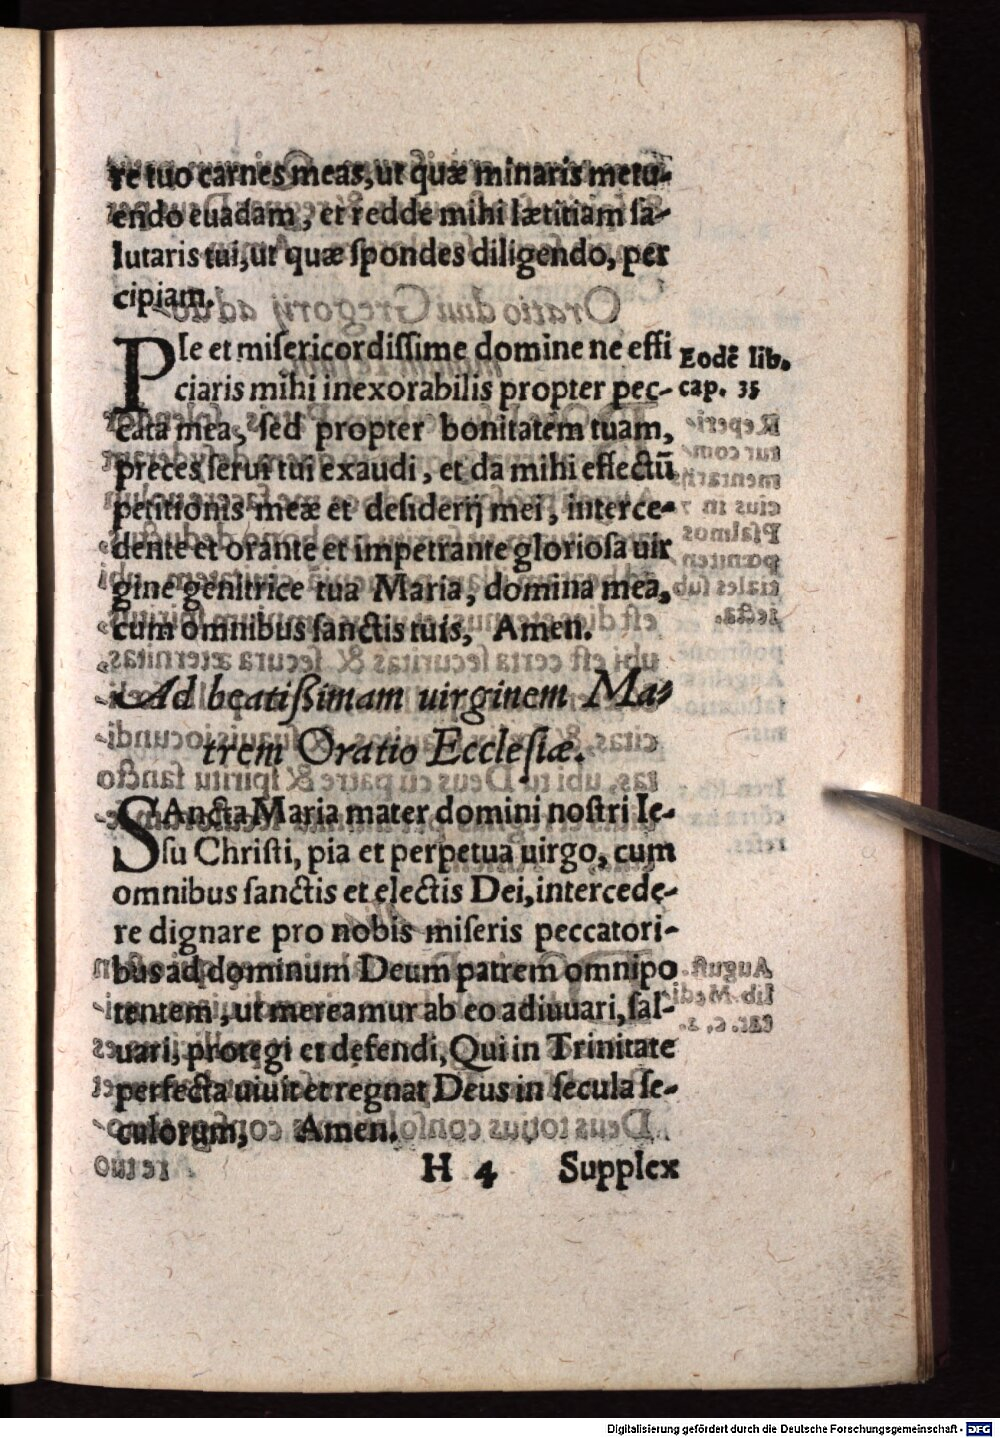 re tuo carnes meas, ut quæ minaris metu-
endo euadam, et redde mihi lætitiam sa-
lutaris tui, ut quæ spondes diligendo, per
cipiam.
PIe et misericordissime domine ne effi
ciaris mihi inexorabilis propter pec-
cata mea, sed propter bonitatem tuam,
preces serui tui exaudi, et da mihi effectū
petitionis meæ et desiderij mei, interce-
dente et orante et impetrante gloriosa uir
gine genitrice tua Maria, domina mea,
cum omnibus sanctis tuis, Amen.
Eodē lib.
cap. 35
Ad beatißimam uirginem Ma-
trem Oratio Ecclesiæ.
SAncta Maria mater domini nostri Ie-
su Christi, pia et perpetua uirgo, cum
omnibus sanctis et electis Dei, intercede-
re dignare pro nobis miseris peccatori-
bus ad dominum Deum patrem omnipo
tentem, ut mereamur ab eo adiuuari, sal-
uari, protegi et defendi, Qui in Trinitate
perfecta uiuit et regnat Deus in secula se-
culorum, Amen.
H 4 Supplex
Digitalisierung gefördert durch die Deutsche Forschungsgemeinschaft - DFG